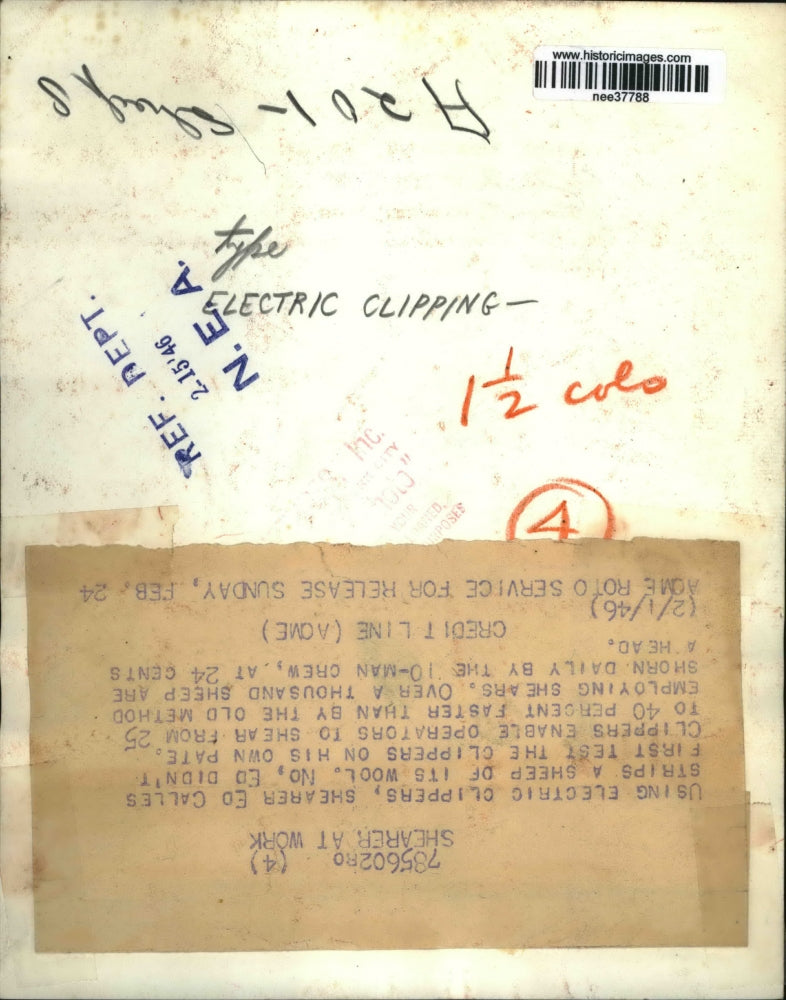 www.historicimages.com
nee37788
A201 - Sheep
type
ELECTRIC CLIPPING —
REF. DEPT.
2.15'46
N. E. A.
1 1/2 colo
INC.
4
785602RO (4)
SHEARER AT WORK
USING ELECTRIC CLIPPERS, SHEARER ED CALLES
STRIPS A SHEEP OF ITS WOOL. NO, ED DIDN'T
FIRST TEST THE CLIPPERS ON HIS OWN PATE.
CLIPPERS ENABLE OPERATORS TO SHEAR FROM 25
TO 40 PERCENT FASTER THAN BY THE OLD METHOD
EMPLOYING SHEARS. OVER A THOUSAND SHEEP ARE
SHORN DAILY BY THE 10-MAN CREW, AT 24 CENTS
A HEAD.
CREDIT LINE (ACME)
(2/1/46)
ACME ROTO SERVICE FOR RELEASE SUNDAY, FEB. 24